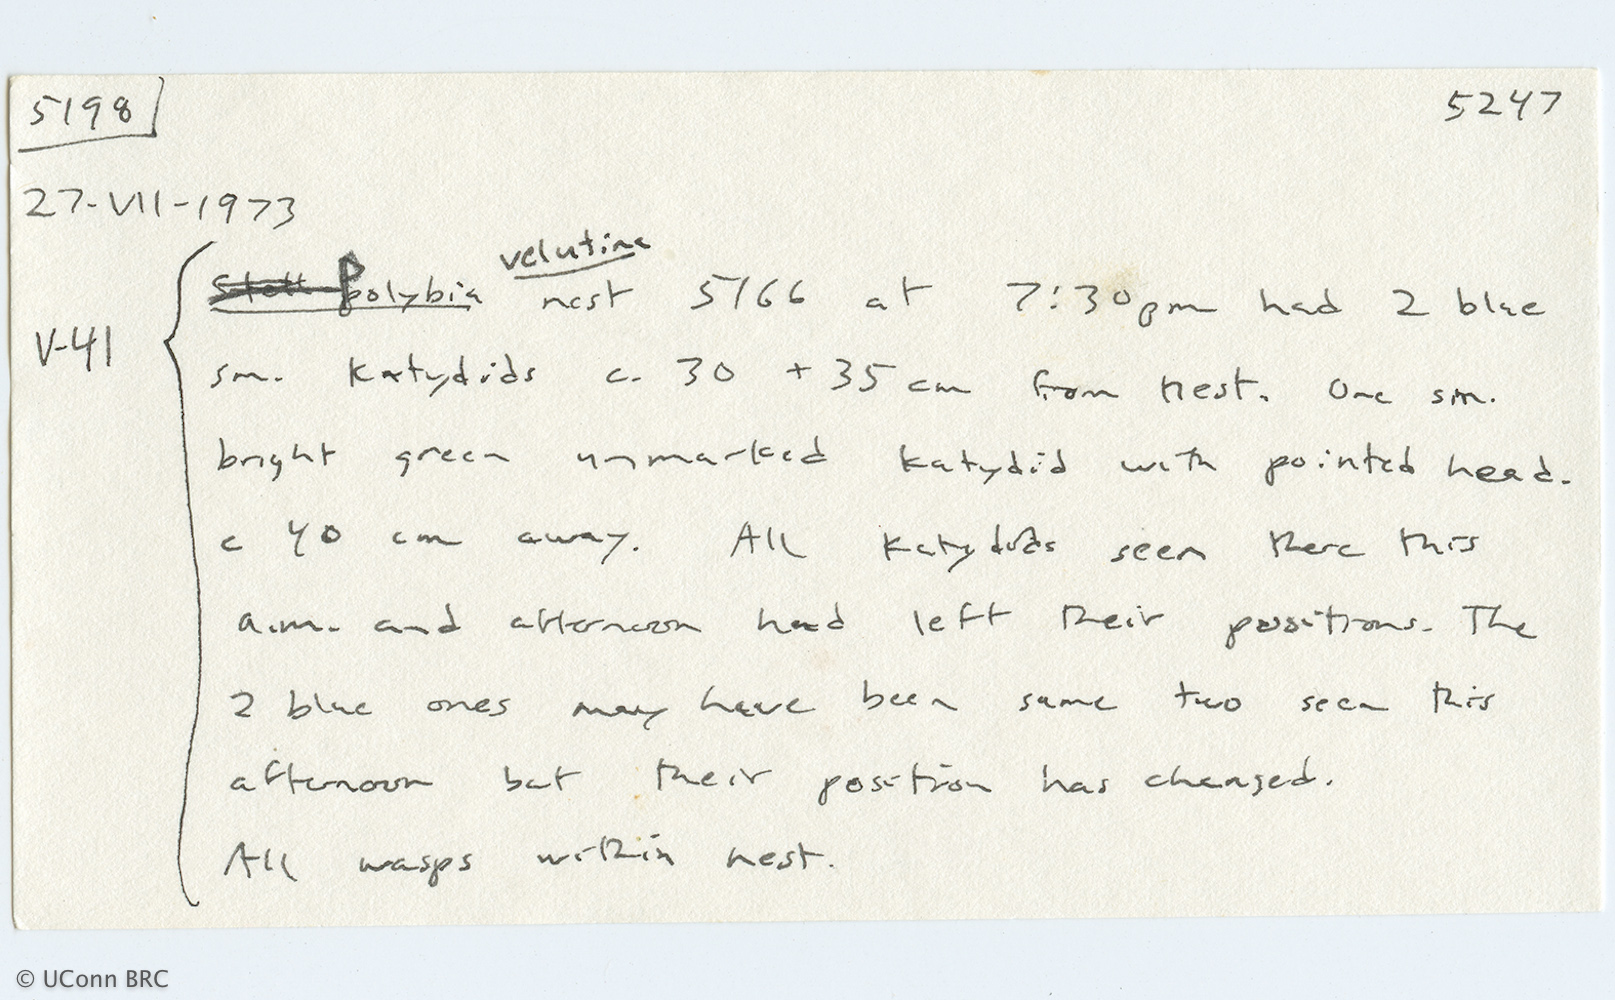 5198 5247
27-VII-1973
velutina
Polybia nest 5166 at 7:30pm had 2 blue
V-41 sm. katydids c. 30 + 35 cm from nest. One sm.
bright green unmarked katydid with pointed head.
c 40 cm away. All katydids seen there this
a.m. and afternoon had left their positions. The
2 blue ones may have been same two seen this
afternoon but their position has changed.
All wasps within nest.
© UConn BRC